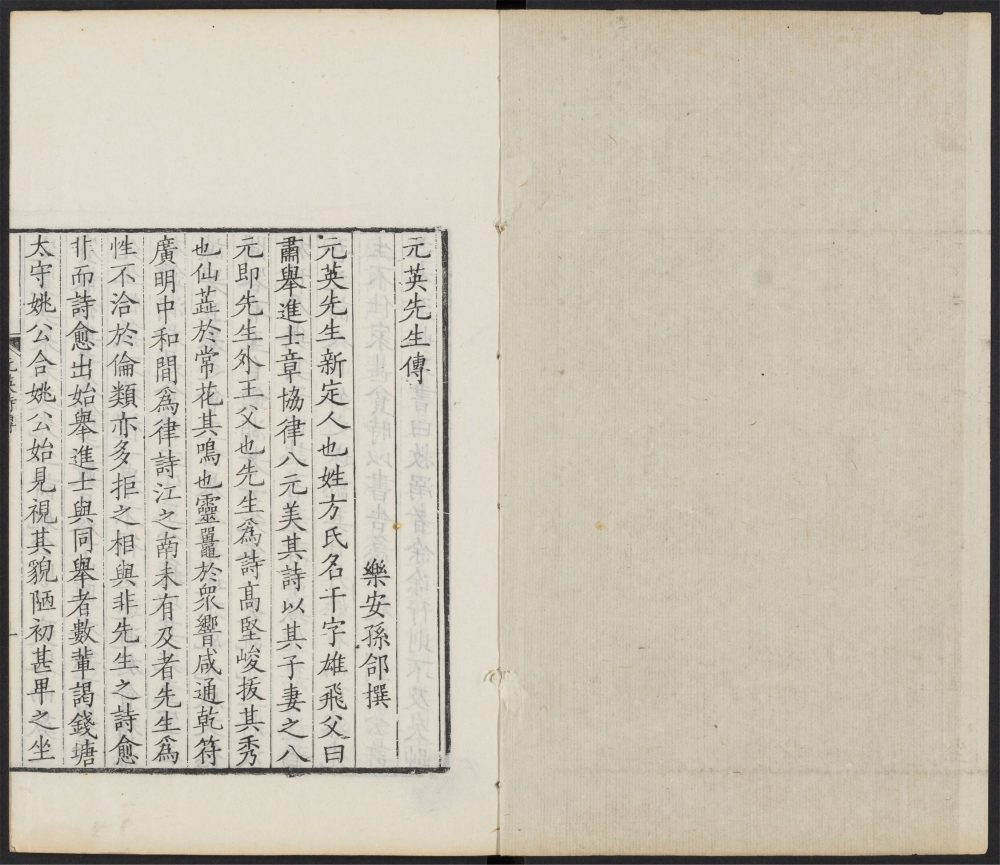 元英先生傳
樂安孫郃撰
元英先生新定人也姓方氏名干字雄飛父曰
肅舉進士章協律八元美其詩以其子妻之八
元即先生外王父也先生爲詩高堅峻拔其秀
也仙蕋於常花其鳴也靈鼉於衆響咸通乾符
廣明中和間爲律詩江之南未有及者先生爲
性不洽於倫類亦多拒之相與非先生之詩愈
非而詩愈出始舉進士與同舉者數輩謁錢塘
太守姚公合姚公始見視其貌陋初甚卑之坐